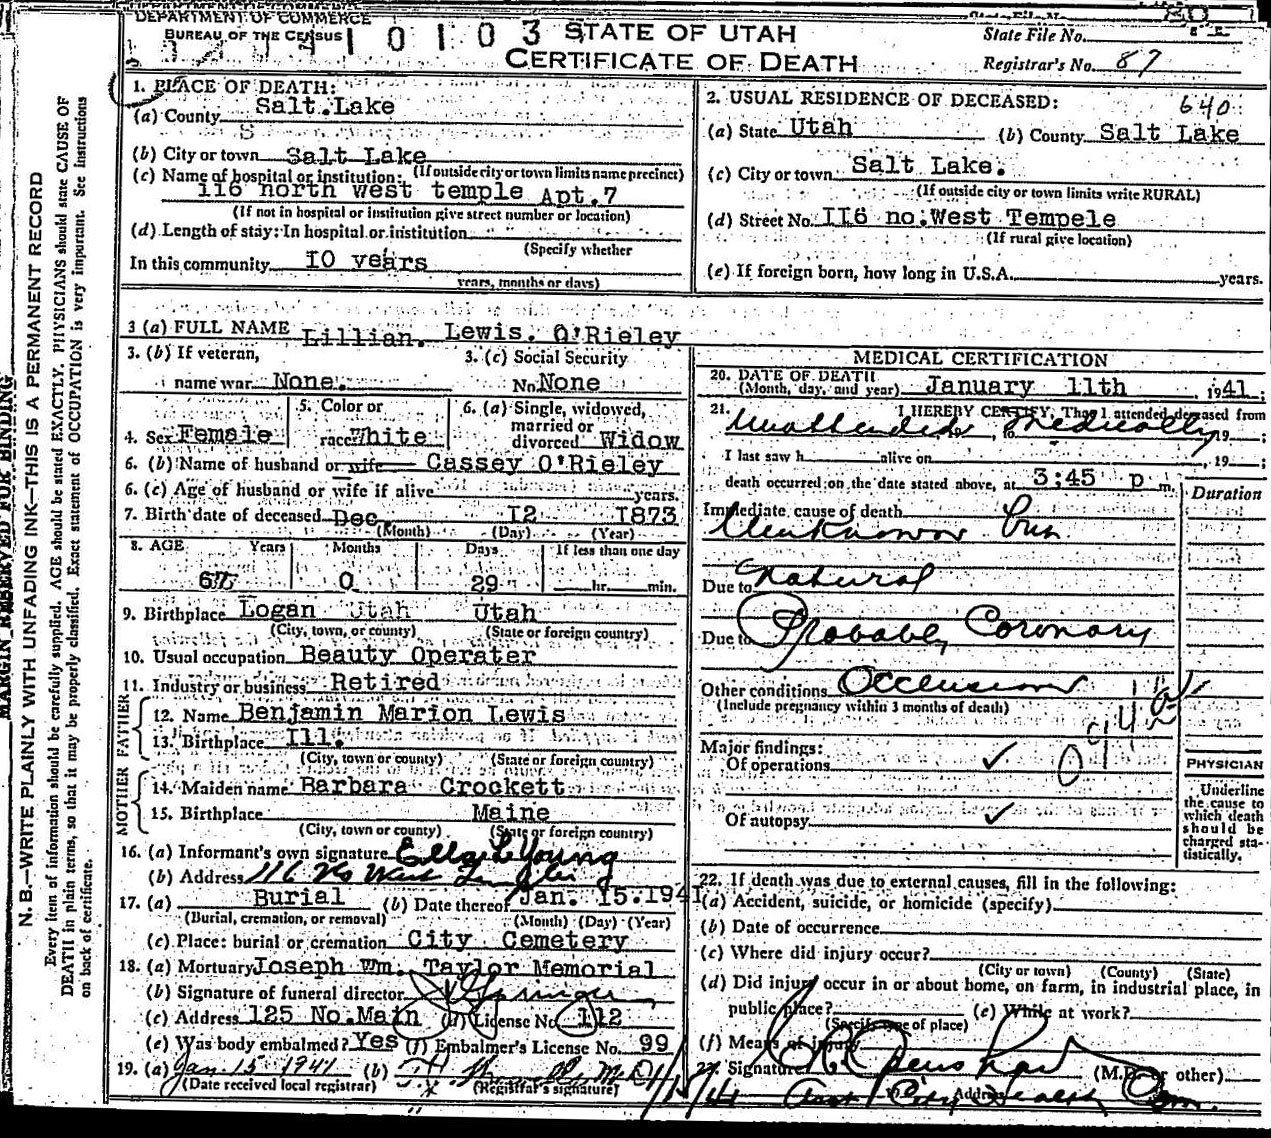 DEPARTMENT OF COMMERCE
BUREAU OF THE CENSUS
1 0 1 0 3
STATE OF UTAH
CERTIFICATE OF DEATH
State File No.
Registrar's No. 87
MARGIN RESERVED FOR BINDING
N. B.—WRITE PLAINLY WITH UNFADING INK—THIS IS A PERMANENT RECORD
Every item of information should be carefully supplied. AGE should be stated EXACTLY. PHYSICIANS should state CAUSE OF
DEATH in plain terms, so that it may be properly classified. Exact statement of OCCUPATION is very important. See instructions
on back of certificate.
1. PLACE OF DEATH:
(a) County Salt Lake
S
(b) City or town Salt Lake
(If outside city or town limits name precinct)
(c) Name of hospital or institution:
116 north west temple Apt.7
(If not in hospital or institution give street number or location)
(d) Length of stay: In hospital or institution
(Specify whether
In this community IO years
years, months or days)
2. USUAL RESIDENCE OF DECEASED: 640
(a) State Utah (b) County Salt Lake
(c) City or town Salt Lake.
(If outside city or town limits write RURAL)
(d) Street No. II6 no.West Tempele
(If rural give location)
(e) If foreign born, how long in U.S.A. years.
3 (a) FULL NAME Lillian. Lewis. O'Rieley
3. (b) If veteran, name war None.
3. (c) Social Security No. None
4. Sex Female
5. Color or race White
6. (a) Single, widowed, married or divorced Widow
6. (b) Name of husband or wife Cassey O'Rieley
6. (c) Age of husband or wife if alive years.
7. Birth date of deceased Dec. I2 I873
(Month) (Day) (Year)
8. AGE Years Months Days If less than one day
67 0 29 hr. min.
9. Birthplace Logan Utah Utah
(City, town, or county) (State or foreign country)
10. Usual occupation Beauty Operater
11. Industry or business Retired
FATHER
12. Name Benjamin Marion Lewis
13. Birthplace Ill.
(City, town or county) (State or foreign country)
MOTHER
14. Maiden name Barbara Crockett
15. Birthplace Maine
(City, town or county) (State or foreign country)
16. (a) Informant's own signature Ella L Young
(b) Address 116 No West Temple
17. (a) Burial (b) Date thereof Jan. I5.1941
(Burial, cremation, or removal) (Month) (Day) (Year)
(c) Place: burial or cremation City Cemetery
18. (a) Mortuary Joseph Wm. Taylor Memorial
(b) Signature of funeral director
(c) Address 125 No.Main (d) License No. 112
(e) Was body embalmed? Yes (f) Embalmer's License No. 99
19. (a) Jan 15 1941 (b)
(Date received local registrar) (Registrar's signature)
MEDICAL CERTIFICATION
20. DATE OF DEATH
(Month, day, and year) January 11th 1941;
21. I HEREBY CERTIFY, That I attended deceased from
Unattended, to Medically, 19 ;
I last saw h alive on , 19 ;
death occurred on the date stated above, at 3:45 p m.
Duration
Immediate cause of death
Unknown but
Due to Natural
Due to Probably Coronary
Other conditions Occlusion
(Include pregnancy within 3 months of death)
Major findings:
Of operations ✓
Of autopsy ✓
PHYSICIAN
Underline
the cause to
which death
should be
charged sta-
tistically.
22. If death was due to external causes, fill in the following:
(a) Accident, suicide, or homicide (specify)
(b) Date of occurrence
(c) Where did injury occur?
(City or town) (County) (State)
(d) Did injury occur in or about home, on farm, in industrial place, in
public place? (e) While at work?
(Specify type of place)
(f) Means of injury
23. Signature (M.D. or other)
Address Asst City Health Com.